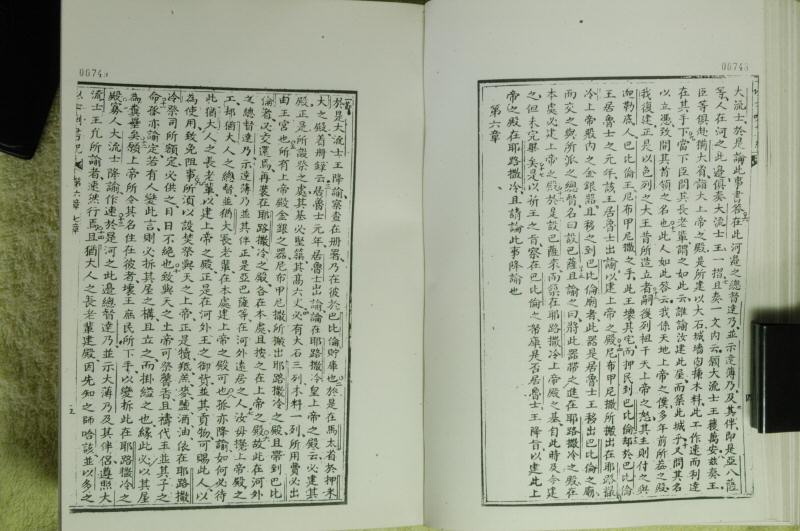 00743
大流士於是論此事書答在此河邊之總督達乃並示達薄乃及其伴即是亞八薩
等人在河之此邊俱奏大流士王一摺且奏一文內云願大流士王穩萬安茲奏王
臣等俱赴猶大省詣大上帝之殿是所建以大石城墻內插木料此工作速而利達
在其手下當下臣問其長老輩謂之如此云誰諭汝建此屋而築此城又問其名
以立憑致問其首領之名也此人如此答云我係天地上帝之僕多年前所蓋之殿
我復建正是以色列之大王昔所造立者嗣後列祖干天上帝之怒其主則付之與
迦勒底人巴比倫王尼布甲尼撒之手此王壞其宅而押民到巴比倫却於巴比倫
王居魯士之元年該王居魯士出諭以建上帝之殿尼布甲尼撒所搬出在耶路撒
冷上帝殿內之金銀器且移之到巴比倫廟者此器是居魯士王移出巴比倫之廟
而交之與所派之總督名曰設巴薩且諭之曰將此器帶之進在耶路撒冷之殿在
本處必建上帝之殿於是設巴薩來而奠在耶路撒冷上帝殿之基自此時及今建
之但未完畢矣是以祈王之旨察在巴比倫之帑庫是否居魯士王降旨以建此上
帝之殿在耶路撒冷且請諭此事降諭也
第六章
00743
於是大流士王降諭察查在册書乃在彼於巴比倫貯庫也於是在馬太省於押米
大之殿着冊錄云居魯士元年居魯士出諭論在耶路撒冷皇上帝之殿云必建其
殿正是所設祭之處其基必堅築其高六丈必有大石三列木料一列所用費必出
由王宮也所有上帝殿金銀之器尼布甲尼撒所搬出耶路撒冷之殿且帶到巴比
倫者必交還焉再裝在耶路撒冷之殿各在本處且按之在上帝之殿故此在河外
之總督達乃示達薄乃並其伴正是亞巴薩等在河外遠居之人汝毋攪上帝殿之
工却猶大人之總督並猶大長老輩在本處建上帝之殿可也孤亦降諭如何必待
此猶大人之長老輩以建上帝之殿正是在河外王之御貨並其貢物可賜此人以
為使用致免阻事所須以設焚祭與天之上帝正是犢羝羔麥鹽酒油依在耶路撒
冷祭司所額定必供之日日不絕也致與天之上帝可祭馨香且禱代王並其子之
命孤亦諭定若有人變此言則必拆其屋之構且立之而掛縊之也緣此必以其屋
為糞華矣願上帝所令其名住在彼者壞王庶民所下手以變拆此在耶路撒冷之
殿寡人大流士降諭作速於是河之此邊總督達乃並示大薄乃及其伴侶遵照大
流士王允所諭者速然行焉且猶大人之長老輩建殿因先知之師哈該並以多之